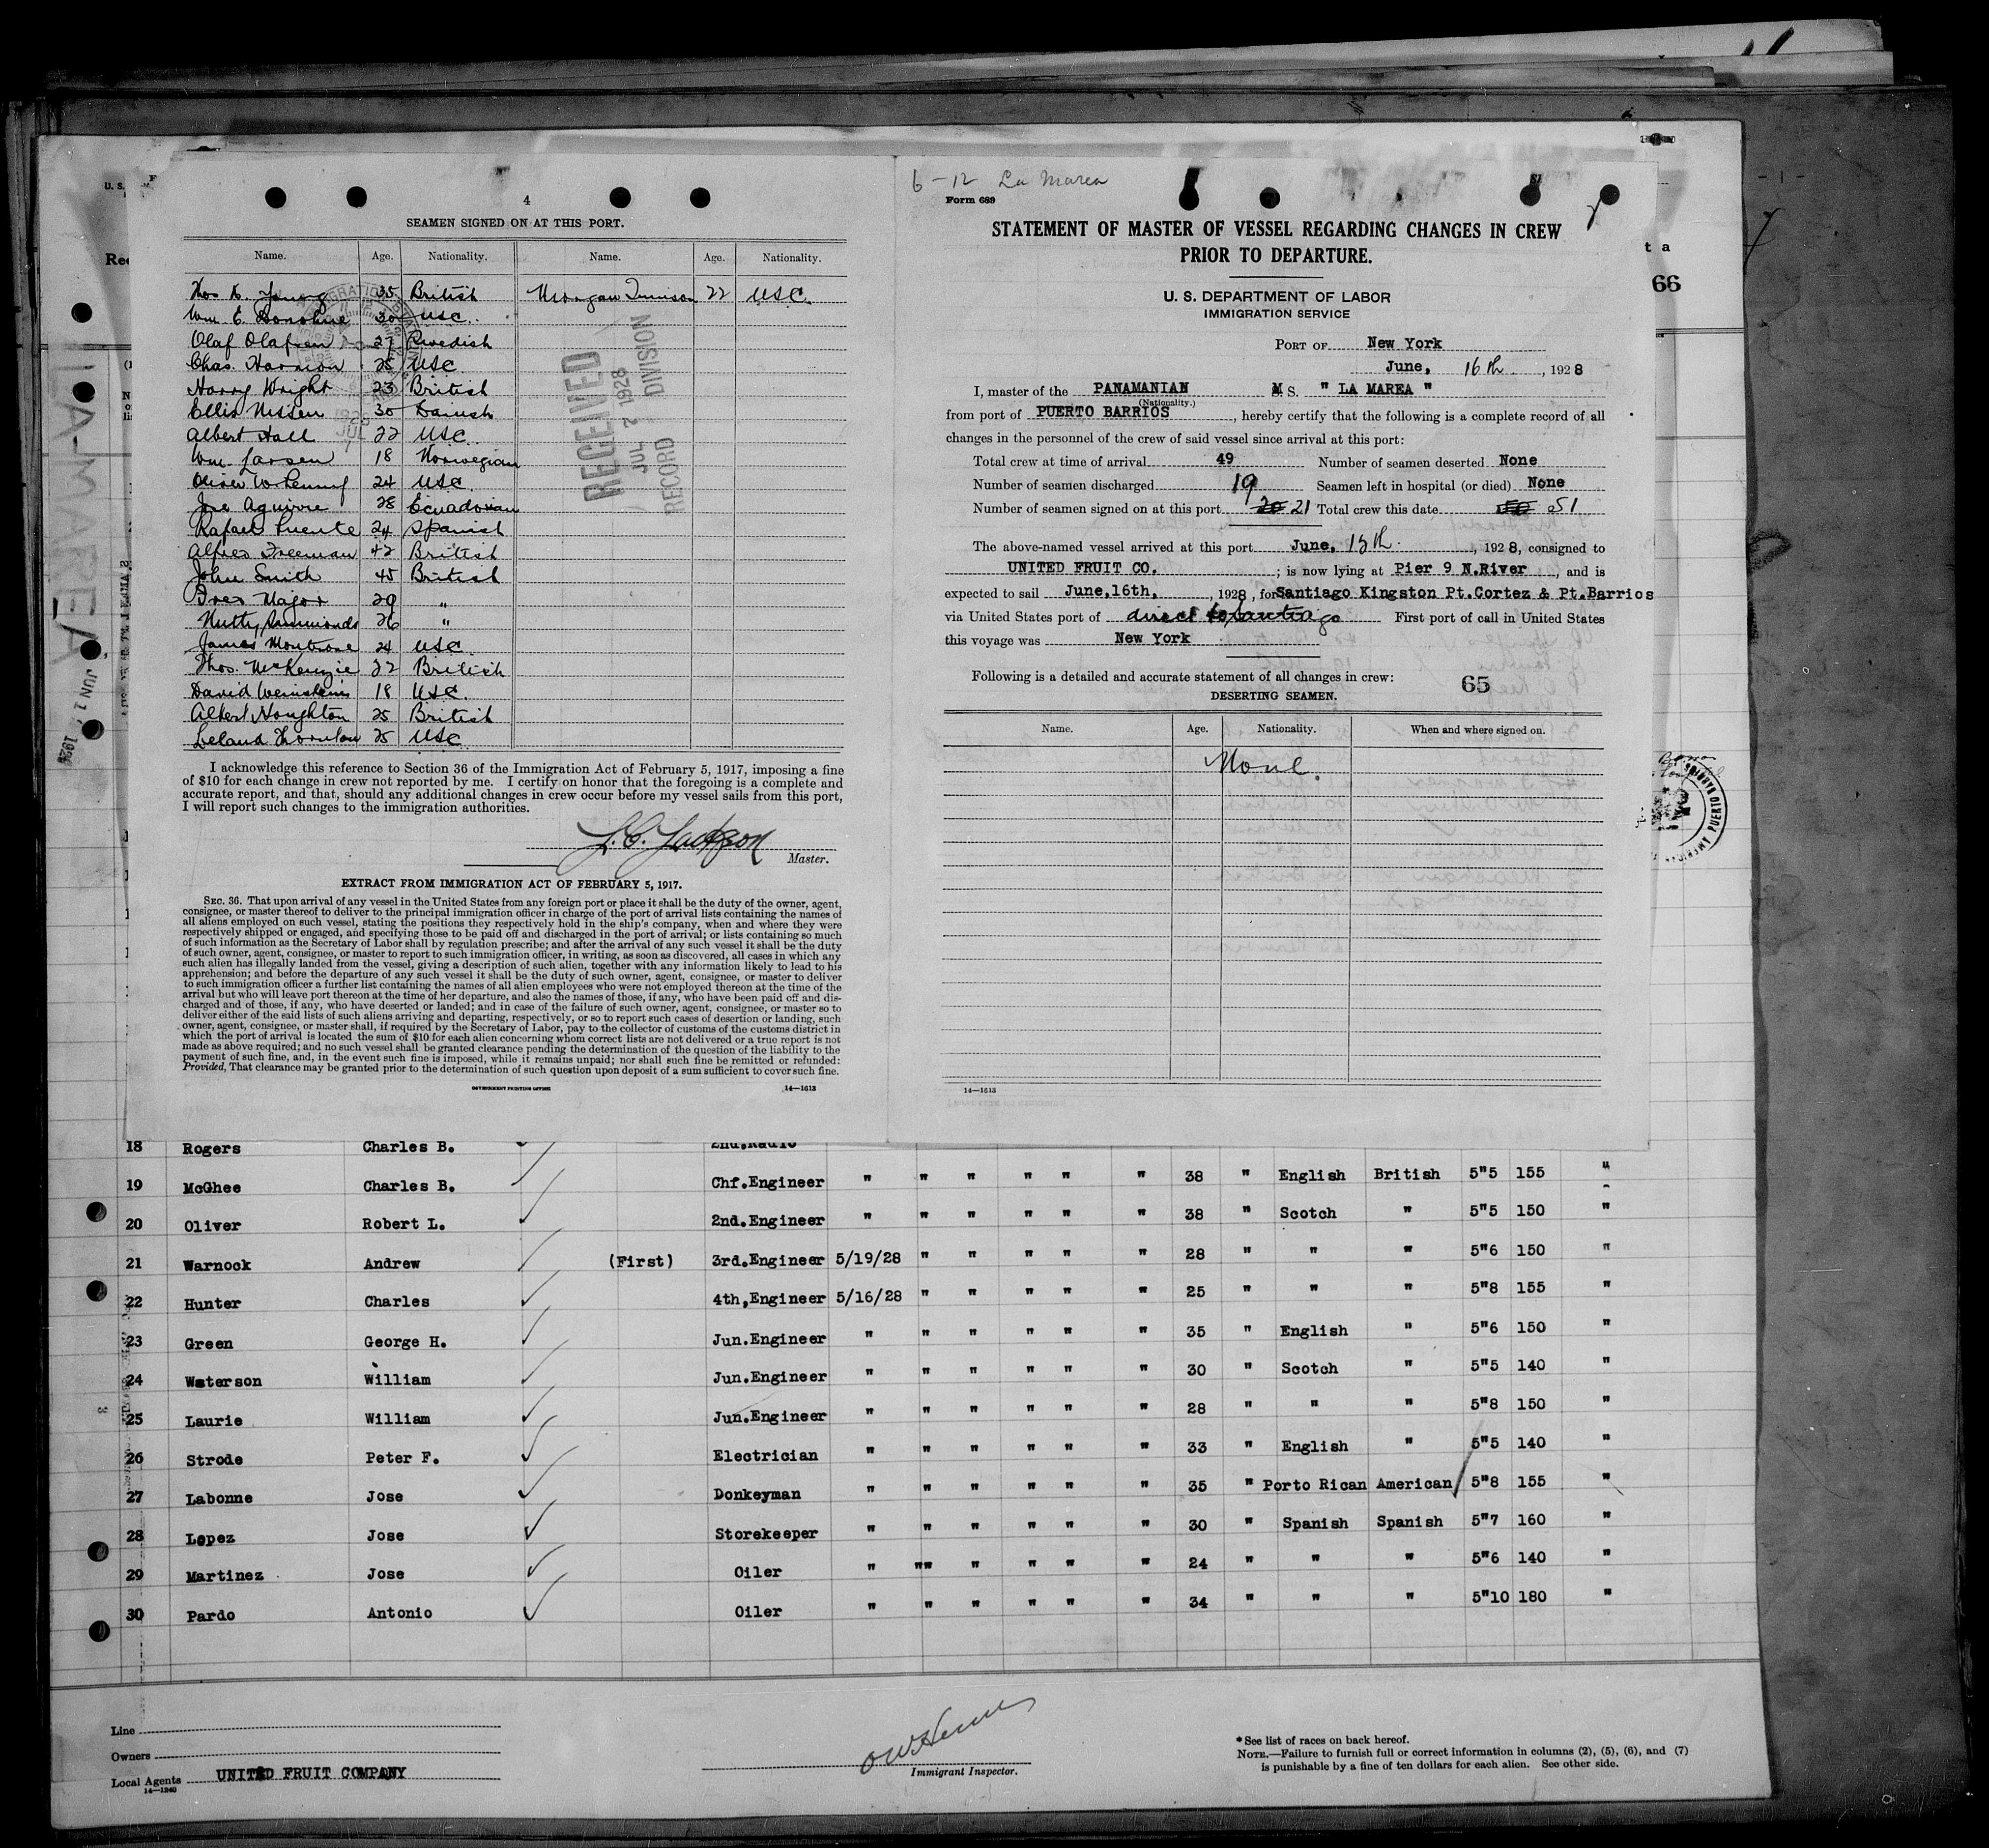 4
SEAMEN SIGNED ON AT THIS PORT.
Name. Age. Nationality. Name. Age. Nationality.
Thos K. Young 35 British Morgan 22 USC.
Wm. E. Donohue 30 USC.
Olaf Olafsen 27 Swedish
Chas. Harrison 25 USC
Harry Wright 23 British
Ellis Nissen 30 Danish
Albert Hall 22 USC.
Wm. Larsen 18 Norwegian
Oliver W. 24 USC
Jose Aguirre 28 Ecuadorian
Rafael Puente 24 Spanish
Alfred Freeman 42 British
John Smith 45 British
Major 29 "
Simmonds 26 "
James Montrose 24 USC
Thos. McKenzie 22 British
David Weinstein 18 USC.
Albert Houghton 25 British
Leland Thornton 25 USC
RECEIVED
JUL 2 1928
RECORD DIVISION
I acknowledge this reference to Section 36 of the Immigration Act of February 5, 1917, imposing a fine
of $10 for each change in crew not reported by me. I certify on honor that the foregoing is a complete and
accurate report, and that, should any additional changes in crew occur before my vessel sails from this port,
I will report such changes to the immigration authorities.
Jackson
Master.
EXTRACT FROM IMMIGRATION ACT OF FEBRUARY 5, 1917.
SEC. 36. That upon arrival of any vessel in the United States from any foreign port or place it shall be the duty of the owner, agent,
consignee, or master thereof to deliver to the principal immigration officer in charge of the port of arrival lists containing the names of
all aliens employed on such vessel, stating the positions they respectively hold in the ship's company, when and where they were
respectively shipped or engaged, and specifying those to be paid off and discharged in the port of arrival; or lists containing so much
of such information as the Secretary of Labor shall by regulation prescribe; and after the arrival of any such vessel it shall be the duty
of such owner, agent, consignee, or master to report to such immigration officer, in writing, as soon as discovered, all cases in which any
such alien has illegally landed from the vessel, giving a description of such alien, together with any information likely to lead to his
apprehension; and before the departure of any such vessel it shall be the duty of such owner, agent, consignee, or master to deliver
to such immigration officer a further list containing the names of all alien employees who were not employed thereon at the time of the
arrival but who will leave port thereon at the time of her departure, and also the names of those, if any, who have been paid off and dis-
charged and of those, if any, who have deserted or landed; and in case of the failure of such owner, agent, consignee, or master so to
deliver either of the said lists of such aliens arriving and departing, respectively, or so to report such cases of desertion or landing, such
owner, agent, consignee, or master shall, if required by the Secretary of Labor, pay to the collector of customs of the customs district in
which the port of arrival is located the sum of $10 for each alien concerning whom correct lists are not delivered or a true report is not
made as above required; and no such vessel shall be granted clearance pending the determination of the question of the liability to the
payment of such fine, and, in the event such fine is imposed, while it remains unpaid; nor shall such fine be remitted or refunded:
Provided, That clearance may be granted prior to the determination of such question upon deposit of a sum sufficient to cover such fine.
GOVERNMENT PRINTING OFFICE 14—1613
6-12 La Marea
Form 689
STATEMENT OF MASTER OF VESSEL REGARDING CHANGES IN CREW
PRIOR TO DEPARTURE.
U. S. DEPARTMENT OF LABOR
IMMIGRATION SERVICE
PORT OF New York
June, 16th, 1928
I, master of the PANAMANIAN M S. " LA MAREA "
(Nationality.)
from port of PUERTO BARRIOS, hereby certify that the following is a complete record of all
changes in the personnel of the crew of said vessel since arrival at this port:
Total crew at time of arrival 49 Number of seamen deserted None
Number of seamen discharged 19 Seamen left in hospital (or died) None
Number of seamen signed on at this port 20 21 Total crew this date 50 51
The above-named vessel arrived at this port June, 12th, 1928, consigned to
UNITED FRUIT CO.; is now lying at Pier 9 N.River, and is
expected to sail June,16th, 1928, for Santiago Kingston Pt.Cortez & Pt.Barrios
via United States port of direct to Santiago First port of call in United States
this voyage was New York
Following is a detailed and accurate statement of all changes in crew: 65
DESERTING SEAMEN.
Name. Age. Nationality. When and where signed on.
None.
14—1613
66
LA-MAREA
JUN 1 1928
18 Rogers Charles B. 2nd.Radio
19 McGhee Charles B. Chf.Engineer " " " " " " 38 " English British 5"5 155 "
20 Oliver Robert L. 2nd.Engineer " " " " " " 38 " Scotch " 5"5 150 "
21 Warnock Andrew (First) 3rd.Engineer 5/19/28 " " " " " 28 " " " 5"6 150 "
22 Hunter Charles 4th,Engineer 5/16/28 " " " " " 25 " " " 5"8 155 "
23 Green George H. Jun.Engineer " " " " " " 35 " English " 5"6 150 "
24 Waterson William Jun.Engineer " " " " " " 30 " Scotch " 5"5 140 "
25 Laurie William Jun.Engineer " " " " " " 28 " " " 5"8 150 "
26 Strode Peter F. Electrician " " " " " " 33 " English " 5"5 140 "
27 Labonne Jose Donkeyman " " " " " " 35 " Porto Rican American 5"8 155 "
28 Lopez Jose Storekeeper " " " " " " 30 " Spanish Spanish 5"7 160 "
29 Martinez Jose Oiler " "" " " " " 24 " " " 5"6 140 "
30 Pardo Antonio Oiler " " " " " " 34 " " " 5"10 180 "
Line
Owners
Local Agents UNITED FRUIT COMPANY
14—1240
Immigrant Inspector.
*See list of races on back hereof.
NOTE.—Failure to furnish full or correct information in columns (2), (5), (6), and (7)
is punishable by a fine of ten dollars for each alien. See other side.